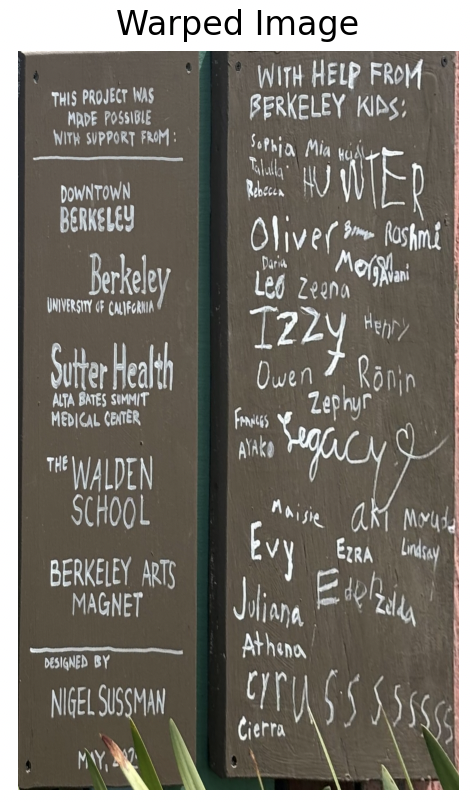 Warped Image
THIS PROJECT WAS
MADE POSSIBLE
WITH SUPPORT FROM:
DOWNTOWN
BERKELEY
Berkeley
UNIVERSITY OF CALIFORNIA
Sutter Health
ALTA BATES SUMMIT
MEDICAL CENTER
THE WALDEN
SCHOOL
BERKELEY ARTS
MAGNET
DESIGNED BY
NIGEL SUSSMAN
WITH HELP FROM
BERKELEY KIDS:
Sophia Mia Heidi
Talulla
Rebecca HUNTER
Oliver Rashmi
Daria Morgan
Leo Zeena Avani
Izzy Henry
Owen Rōnin
Zephyr
FRANCES
AYAKO Legacy
Maisie aki
Evy EZRA Lindsay
Juliana Zelda
Athena
cyrussssssss
Cierra